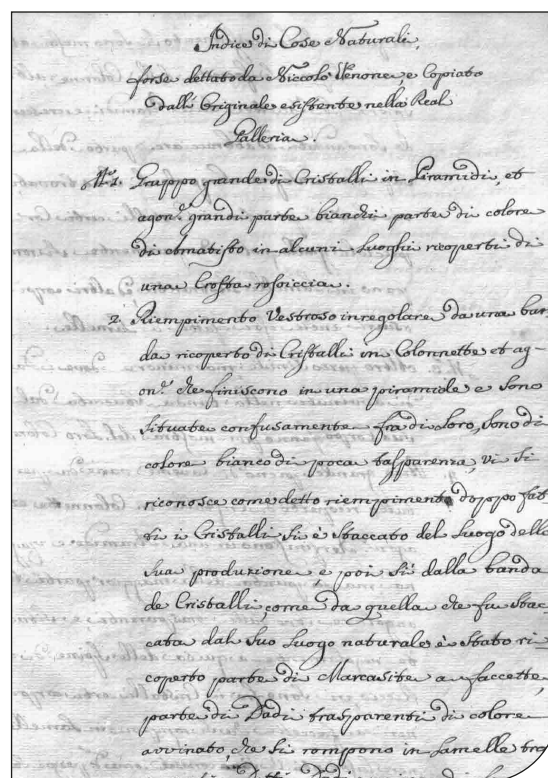 Indice di Cose Naturali,
forse dettato da Niccolò Stenone, e Copiato
dall'Originale esistente nella Real
Galleria.
N.º 1. Gruppo grande di Cristalli in Piramidi, et
agon.º grandi parte bianchi parte di colore
di amatisto in alcuni Luoghi ricoperti di
una Crosta rossiccia.
2. Riempimento Vestroso inregolare da una ban
da ricoperto di Cristalli in Colonnette et ag-
on.º che finiscono in una piramide e sono
situate confusamente fra di Loro, sono di
colore bianco di poca trasparenza, vi si
riconosce come detto riempimento doppo fat
ti i Cristalli si è staccato del Luogo della
sua produzione, e poi sì dalla banda
de Cristalli, come da quella che fu stac
cata dal suo Luogo naturale è stato ri-
coperto parte di Marcasite a faccette,
parte di Dadi trasparenti di colore
avvinato, che si rompono in Lamelle tra